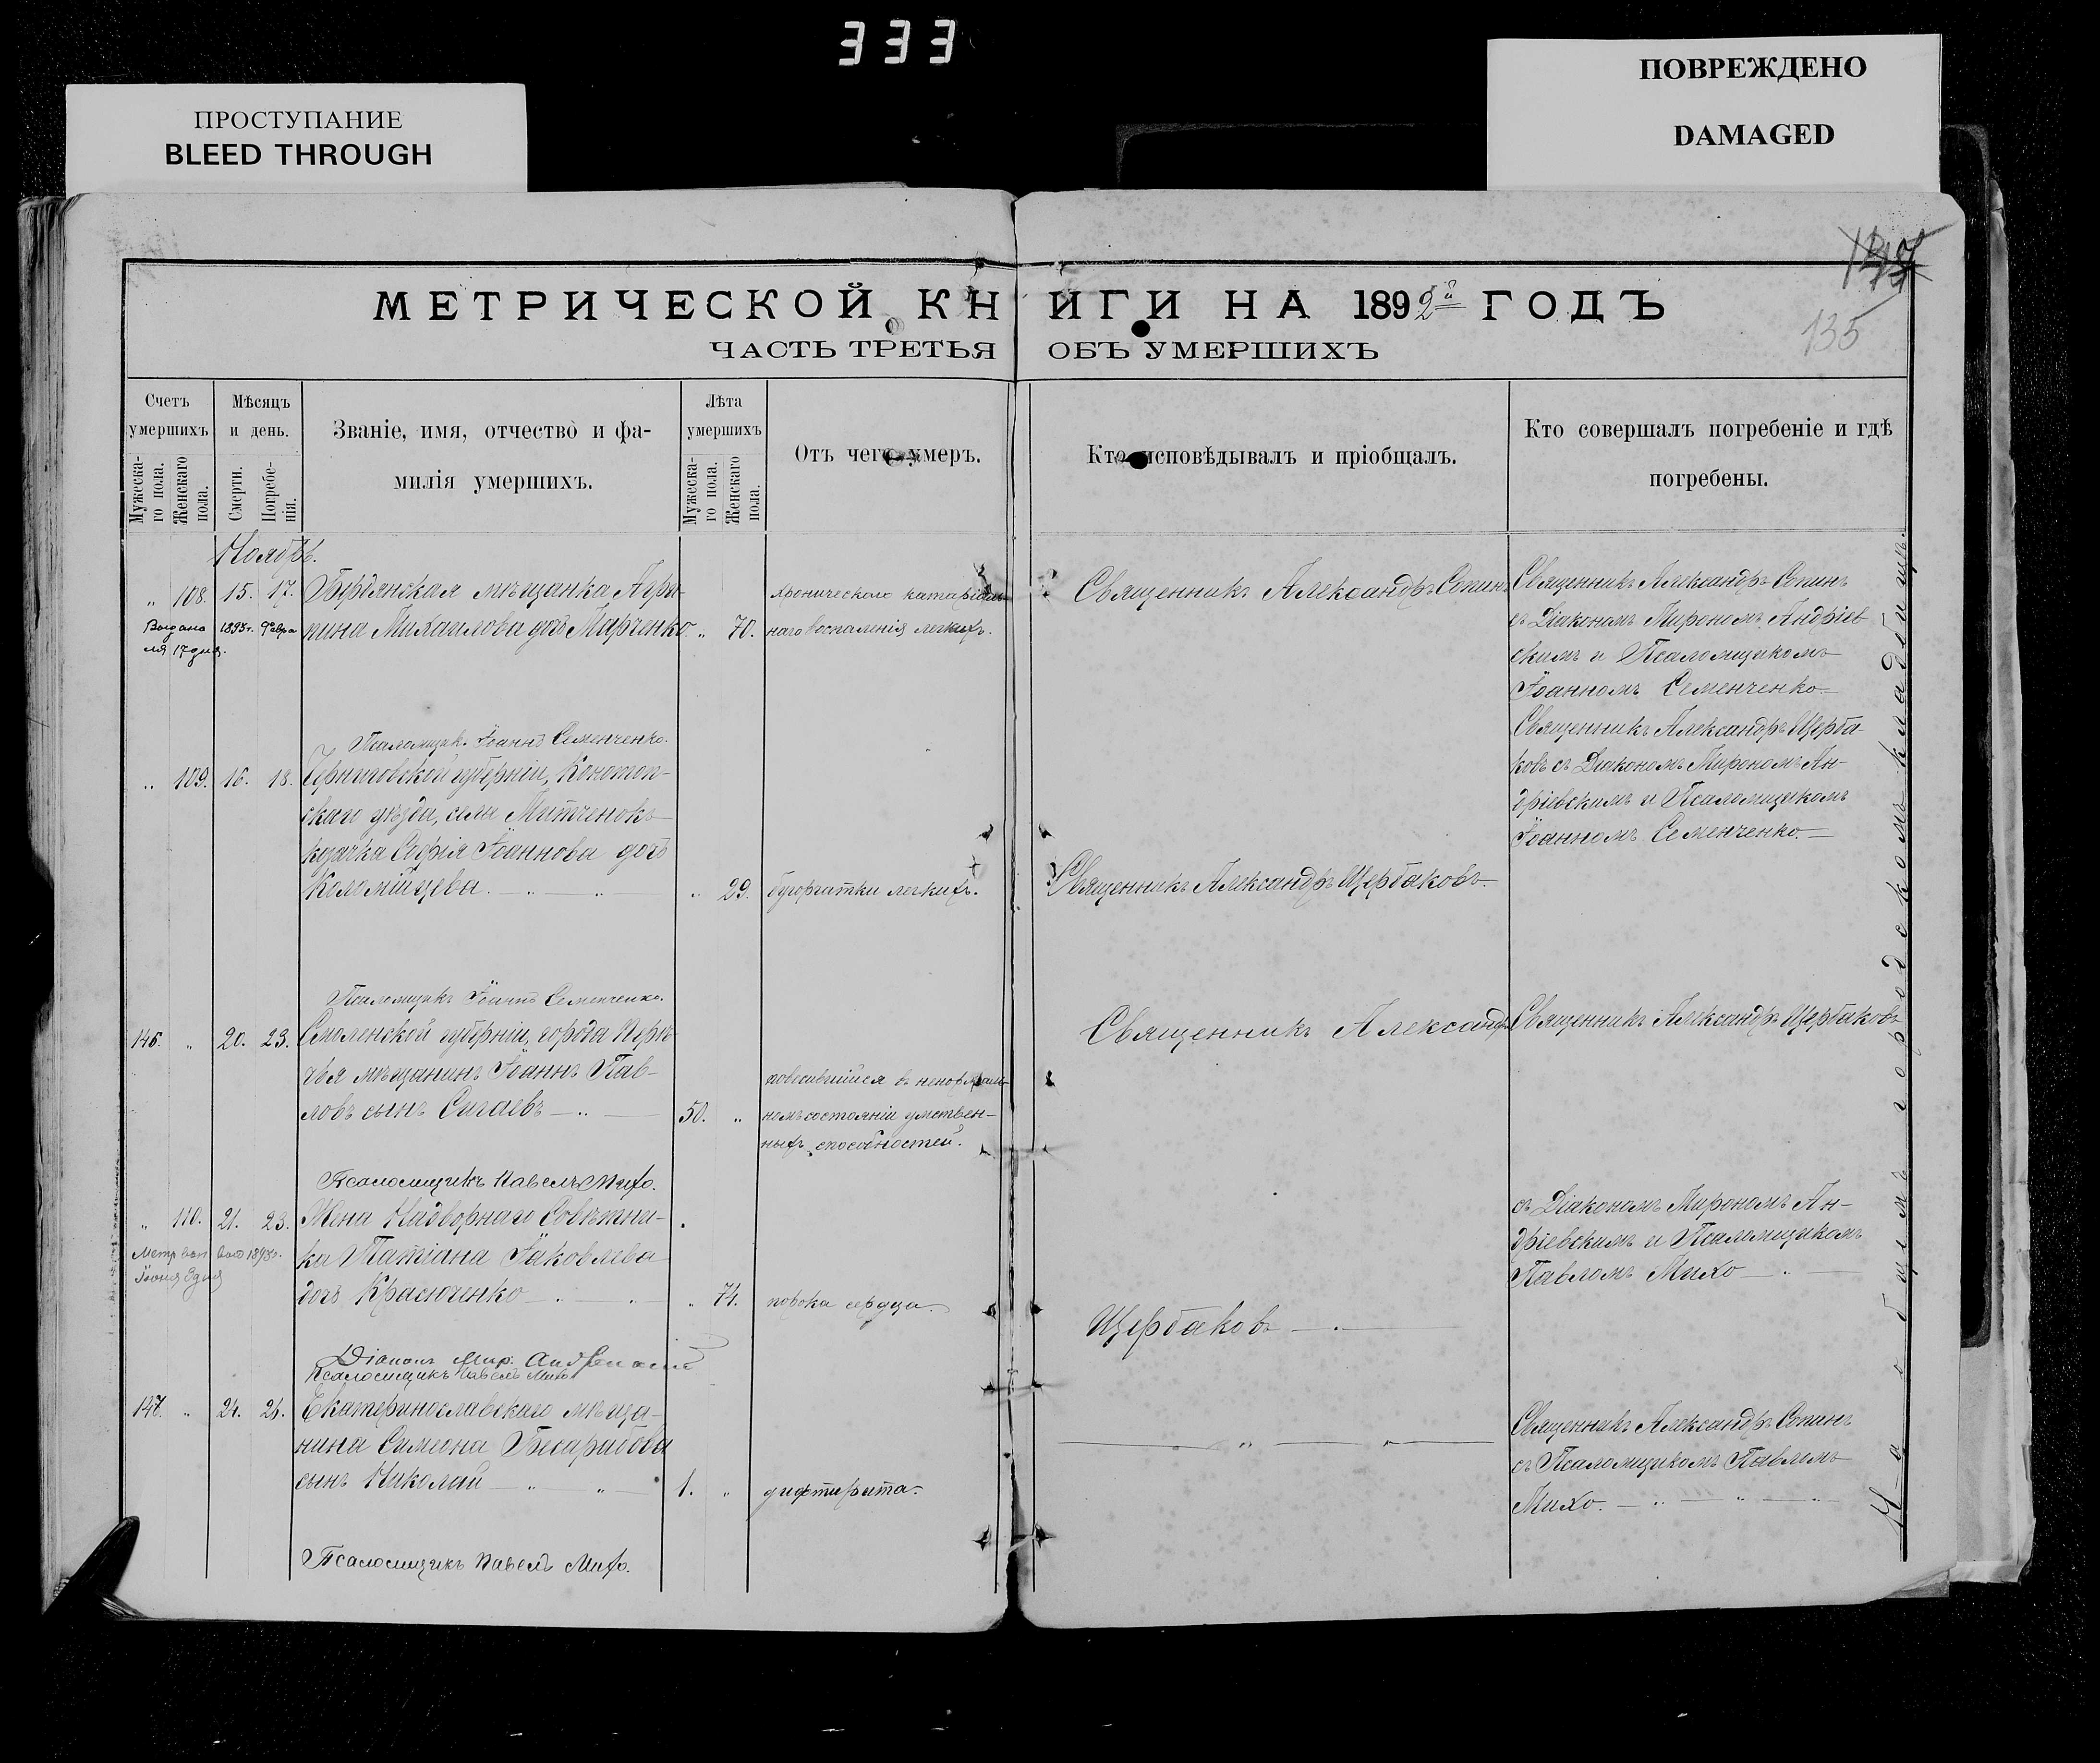 333
ПРОСТУПАНИЕ
BLEED THROUGH
ПОВРЕЖДЕНО
DAMAGED
135
МЕТРИЧЕСКОЙ КНИГИ НА 1892й ГОДЪ
ЧАСТЬ ТРЕТЬЯ ОБЪ УМЕРШИХЪ
Счетъ умершихъ
Мужеска-го пола.
Женскаго пола.
Мѣсяцъ и день.
Смерти.
Погребе-нія.
Званіе, имя, отчество и фа-
милія умершихъ.
Лѣта умершихъ
Мужеска-го пола.
Женскаго пола.
Отъ чего умеръ.
Кто исповѣдывалъ и пріобщалъ.
Кто совершалъ погребеніе и гдѣ
погребены.
Ноябрь.
" 108. 15. 17.
Бердянская мѣщанка Агри-
пина Михаилова дочь Марченко
" 70.
хроническаго катарраль-
наго воспаленія легкихъ.
Выдано 1893г. Февра
ля 17 дня.
Священникъ Александръ Сопинъ
Священникъ Александръ Сопинъ
съ Діакономъ Мирономъ Андріев
скимъ и Псаломщикомъ
Іоанномъ Семенченко
Псаломщик. Іоаннъ Семенченко.
" 109. 16. 18.
Черниговской губерніи, Конотоп-
скаго уѣзда, села Митченокъ
козачка Софія Іоаннова дочь
Коломійцева
" 29.
бугорчатки легкихъ.
Священникъ Александръ Щербаковъ.
Священникъ Александръ Щерба-
ковъ съ Діакономъ Мирономъ Ан-
дріевскимъ и Псаломщикомъ
Іоанномъ Семенченко.
Псаломщикъ Іоаннъ Семенченко.
146. " 20. 23.
Смоленской губерніи, города Порѣ-
чья мѣщанинъ Іоаннъ Пав-
ловъ сынъ Сигаевъ
50. "
повесившійся въ ненормаль-
номъ состояніи умствен-
ныхъ способностей.
Священникъ Александръ
Священникъ Александръ Щербаковъ
Псаломщикъ Павелъ Михо.
" 110. 21. 23.
Жена Надворнаго Совѣтни-
ка Татіана Іаковлева
дочь Красюченко
" 74.
порока сердца.
Іюня 8 дня
Щербаковъ
съ Діакономъ Мирономъ Ан-
дріевскимъ и Псаломщикомъ
Павломъ Михо
Діаконъ Мир. Андріевскій
Псаломщикъ Павелъ Михо
147. " 24. 26.
Екатеринославскаго мѣща-
нина Симеона Бесарабова
сынъ Николай
1. "
дифтерита.
Священникъ Александръ Сопинъ
съ Псаломщикомъ Павломъ
Михо.
Псаломщикъ Павелъ Михо.
На общемъ городскомъ кладбищѣ.